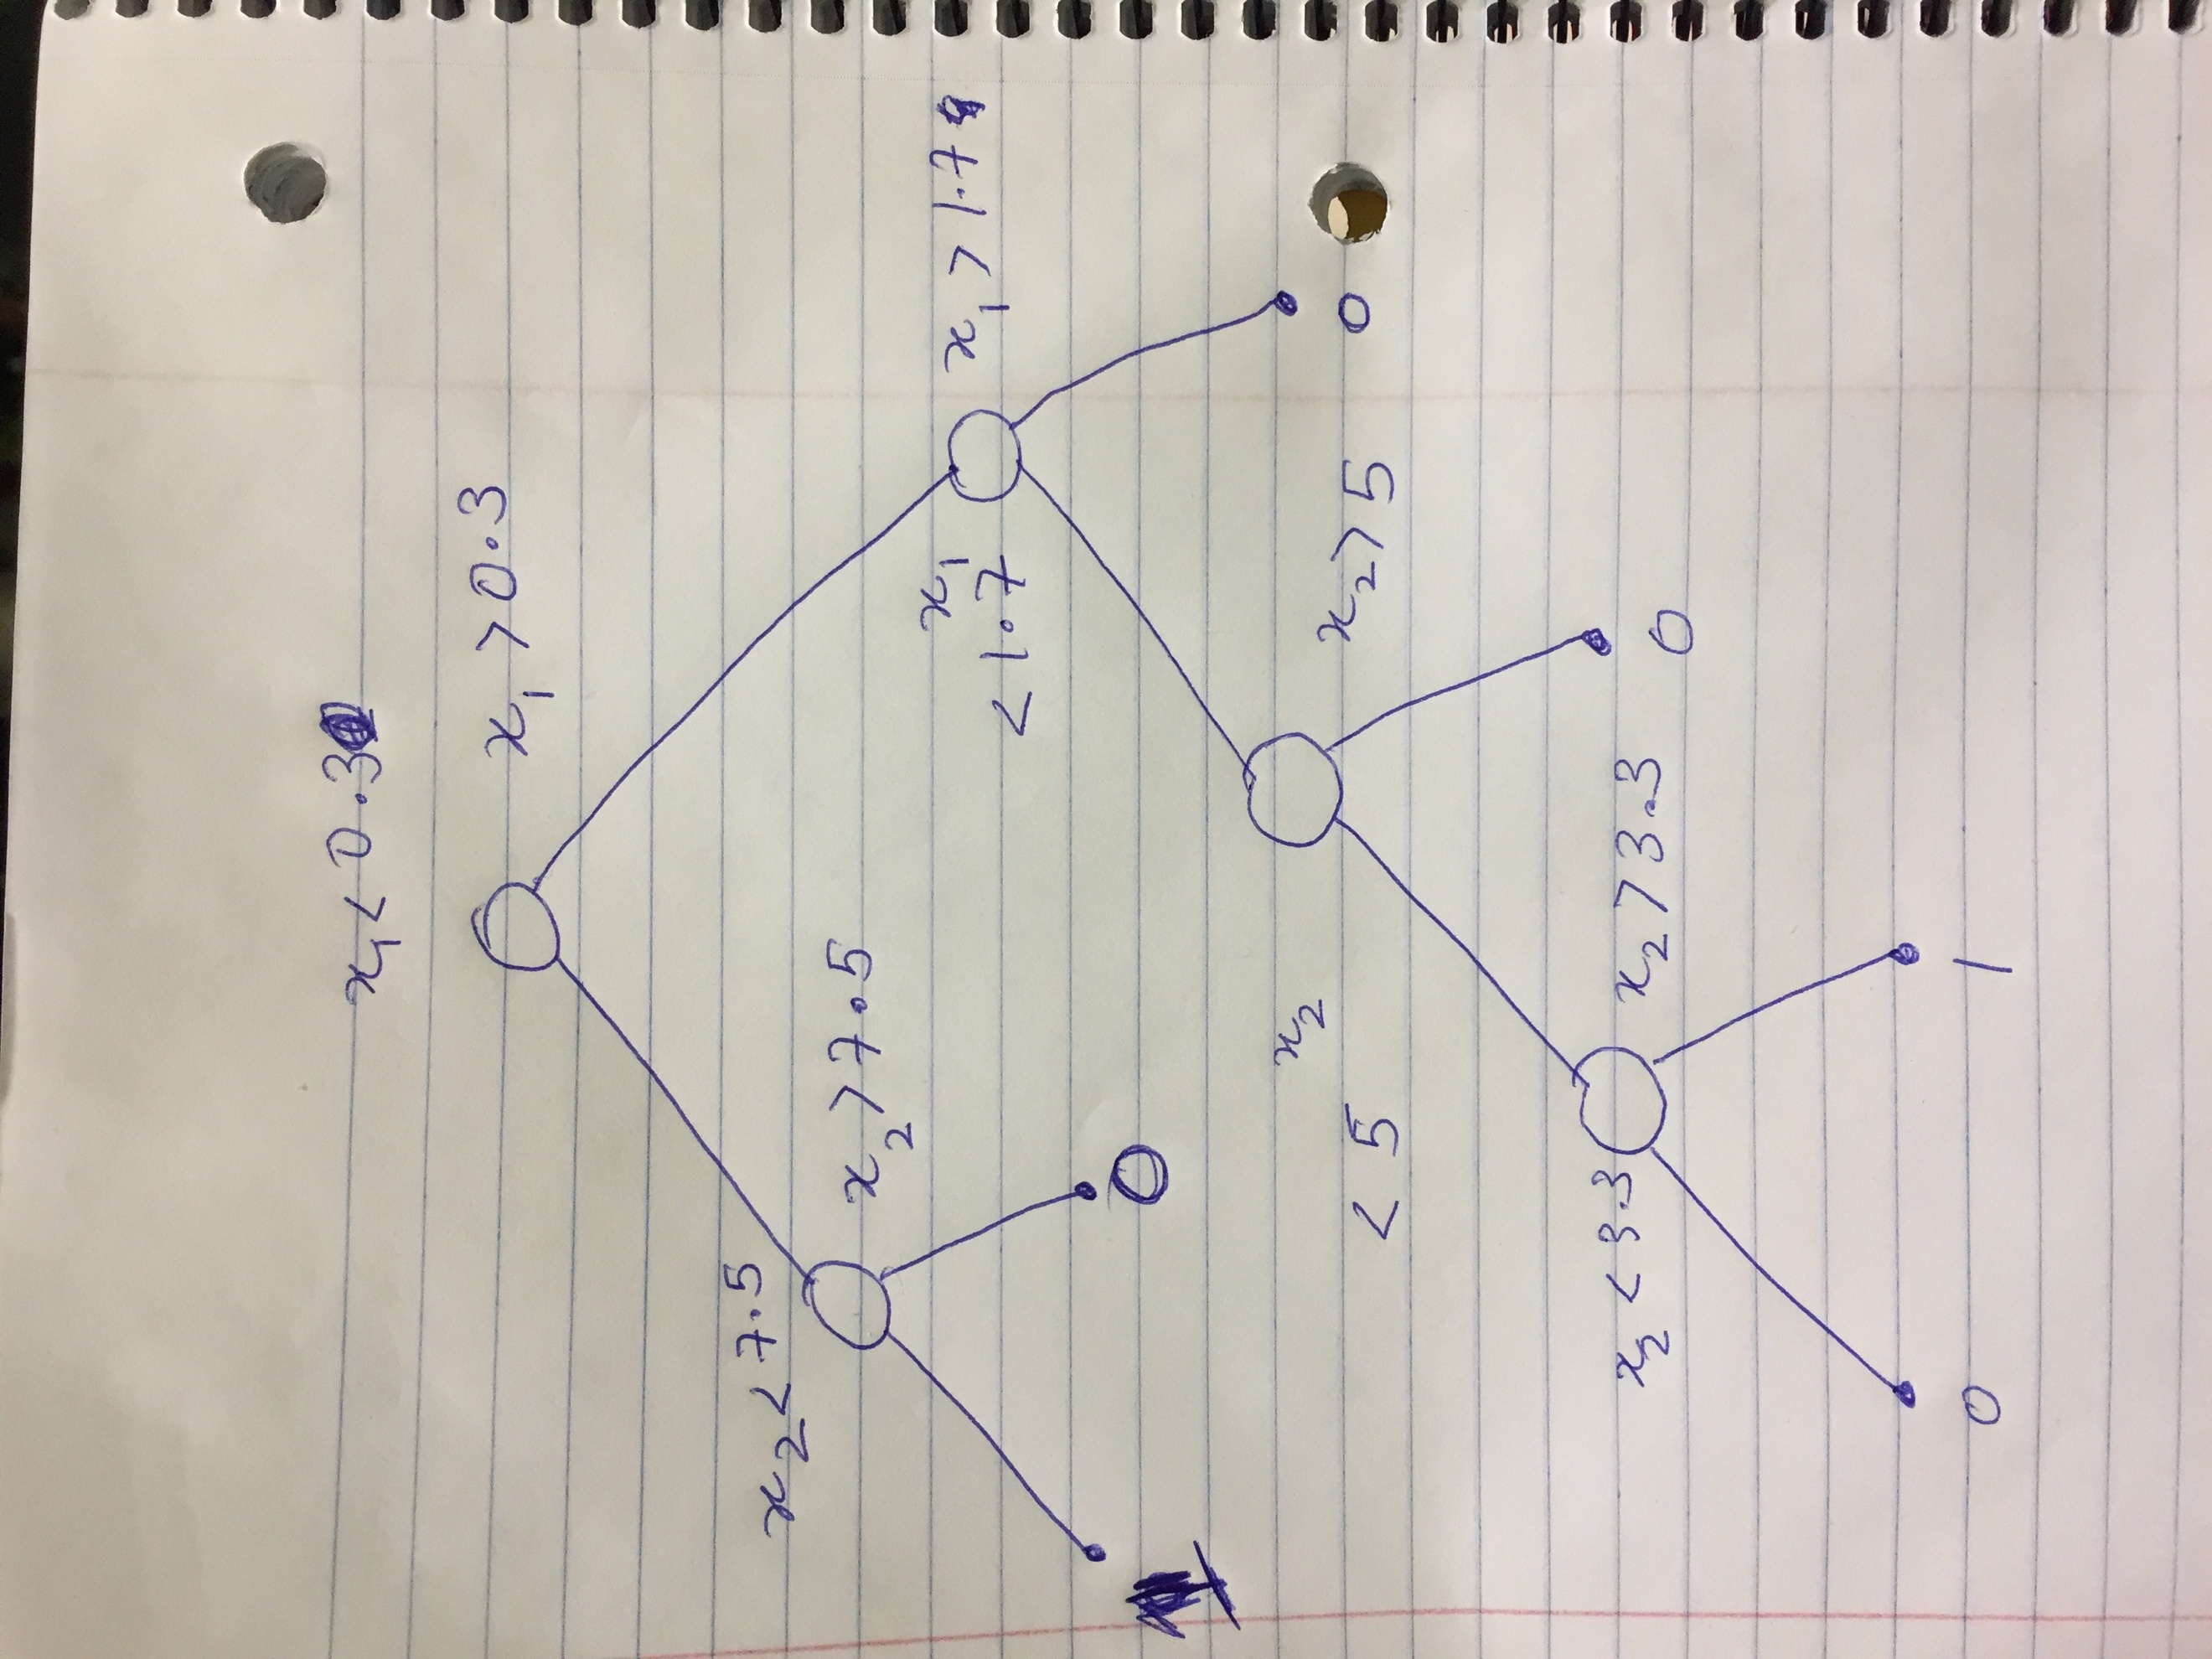 x₁ < 0.3
x₁ > 0.3
x₂ < 7.5
x₂ > 7.5
x₁
< 1.7
x₁ > 1.7
1
0
0
x₂
< 5
x₂ > 5
0
x₂ < 3.3
x₂ > 3.3
0
1